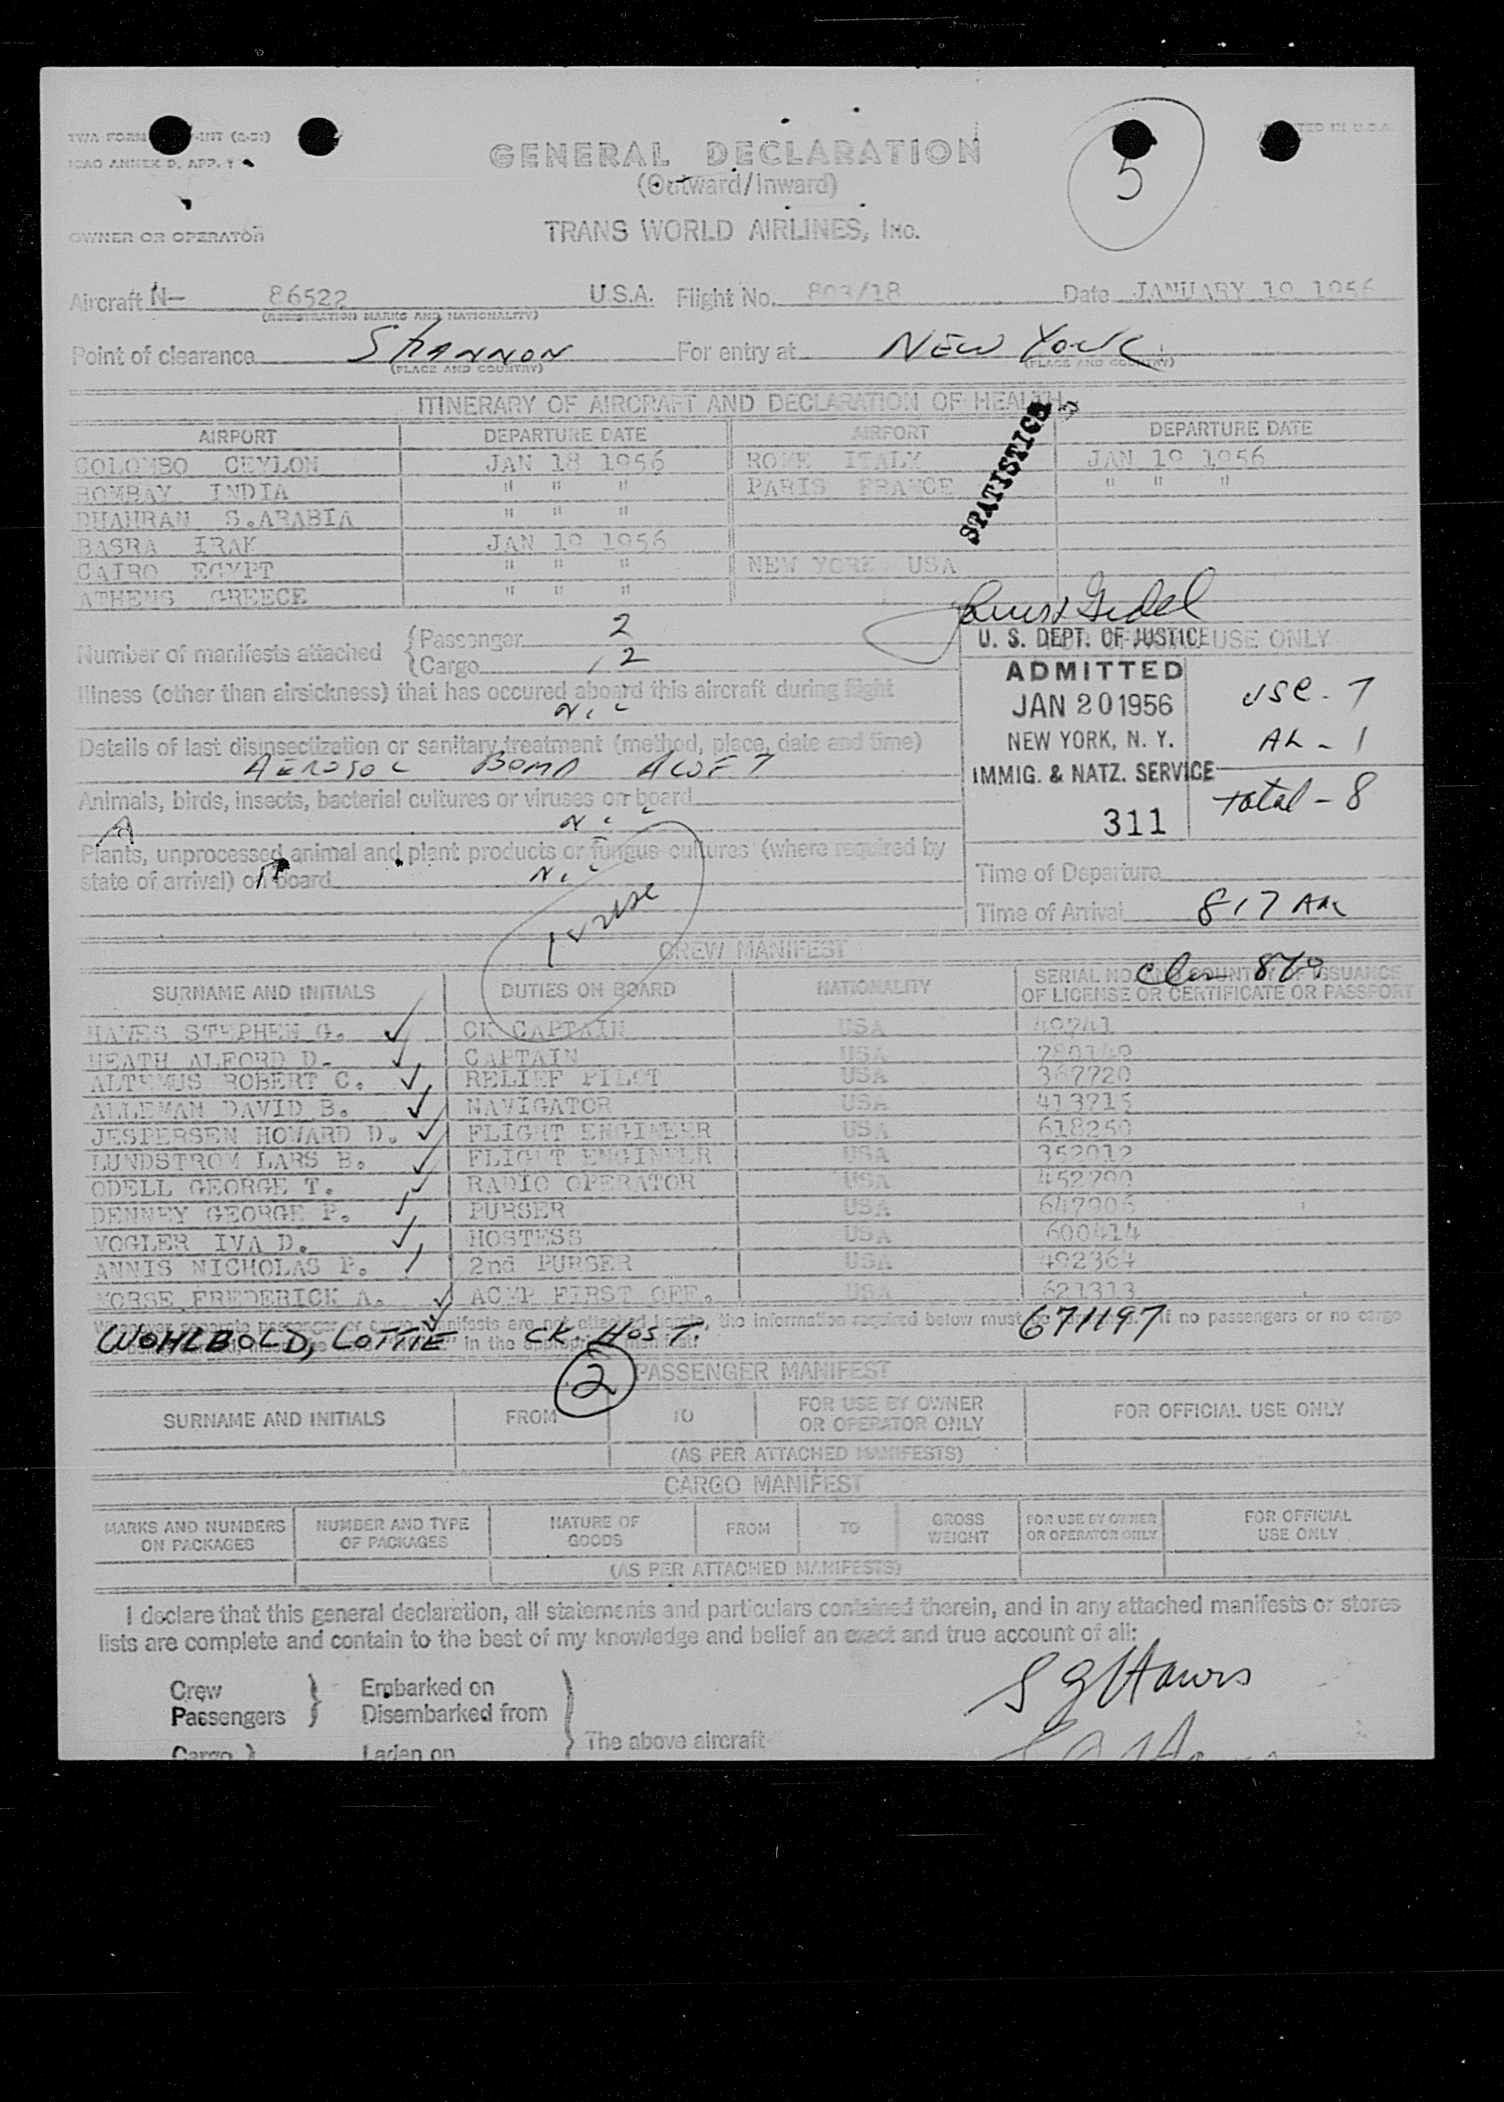 TWA FORM -INT (2-51)
ICAO ANNEX 9, APP. 1
PRINTED IN U.S.A.
5
GENERAL DECLARATION
(Outward/Inward)
OWNER OR OPERATOR
TRANS WORLD AIRLINES, INC.
Aircraft N- 86522 U.S.A. Flight No. 803/18 Date JANUARY 19 1956
(REGISTRATION MARKS AND NATIONALITY)
Point of clearance SHANNON For entry at NEW YORK
(PLACE AND COUNTRY) (PLACE AND COUNTRY)
ITINERARY OF AIRCRAFT AND DECLARATION OF HEALTH
STATISTICS
AIRPORT DEPARTURE DATE AIRPORT DEPARTURE DATE
COLOMBO CEYLON JAN 18 1956 ROME ITALY JAN 19 1956
BOMBAY INDIA " " " PARIS FRANCE " " "
DHAHRAN S.ARABIA " " "
BASRA IRAK JAN 19 1956
CAIRO EGYPT " " " NEW YORK USA
ATHENS GREECE " " "
Number of manifests attached { Passenger 2
Cargo 2
U. S. DEPT. OF JUSTICE USE ONLY
ADMITTED
JAN 20 1956
NEW YORK, N. Y.
IMMIG. & NATZ. SERVICE
311
USC - 7
AL - 1
Total - 8
Illness (other than airsickness) that has occured aboard this aircraft during flight
NIL
Details of last disinsectization or sanitary treatment (method, place, date and time)
AEROSOL BOMB ALOFT
Animals, birds, insects, bacterial cultures or viruses on board
NIL
Plants, unprocessed animal and plant products or fungus cultures (where required by
state of arrival) on board NIL
Time of Departure
Time of Arrival 817 AM
CREW MANIFEST
SURNAME AND INITIALS DUTIES ON BOARD NATIONALITY SERIAL NO. AND COUNTRY OF ISSUANCE
OF LICENSE OR CERTIFICATE OR PASSPORT
HAWES STEPHEN G. CK CAPTAIN USA 49741
HEATH ALFORD D. CAPTAIN USA
ALTHMUS ROBERT C. RELIEF PILOT USA 367720
ALLEMAN DAVID B. NAVIGATOR USA 413215
JESPERSEN HOWARD D. FLIGHT ENGINEER USA 618250
LUNDSTROM LARS B. FLIGHT ENGINEER USA 352012
ODELL GEORGE T. RADIO OPERATOR USA 452790
DENNEY GEORGE P. PURSER USA 647906
VOGLER IVA D. HOSTESS USA 600414
ANNIS NICHOLAS P. 2nd PURSER USA 492364
MORSE FREDERICK A. ACMP FIRST OFF. USA 621313
Whenever separate passenger or cargo manifests are not attached hereto, the information required below must if no passengers or no cargo
in the appropriate manifest.
WOHLBOLD, LOTTIE CK HOST. 671197
2
PASSENGER MANIFEST
SURNAME AND INITIALS FROM TO FOR USE BY OWNER
OR OPERATOR ONLY FOR OFFICIAL USE ONLY
(AS PER ATTACHED MANIFESTS)
CARGO MANIFEST
MARKS AND NUMBERS
ON PACKAGES NUMBER AND TYPE
OF PACKAGES NATURE OF
GOODS FROM TO GROSS
WEIGHT FOR USE BY OWNER
OR OPERATOR ONLY FOR OFFICIAL
USE ONLY
(AS PER ATTACHED MANIFESTS)
I declare that this general declaration, all statements and particulars contained therein, and in any attached manifests or stores
lists are complete and contain to the best of my knowledge and belief an exact and true account of all:
S G Hawes
Crew } Embarked on
Passengers Disembarked from
The above aircraft
Cargo } Laden on